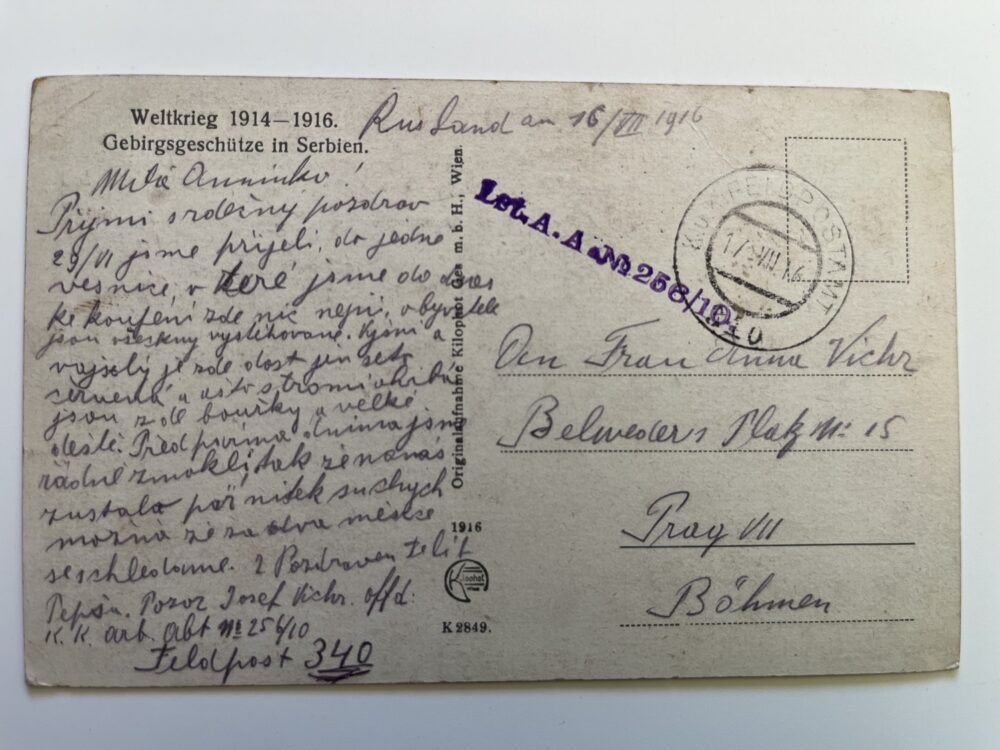 Weltkrieg 1914—1916.
Gebirgsgeschütze in Serbien.
Rusland am 16/VII 1916
Milá Anninko!
Prijmi srdečny pozdrav
29/VI jsme prijeli, do jedne
vesnice, v ktere jsme do dnes
ke koupení zde nic nejni, obyvatele
jsou všeckny vystehovane.
je zde dost jen zeto
červená a
jsou zde bouřky a velké
deště. Pred dnima jsme
řádně zmokli, tak ze na nás
zustalo pář nitek suchych
možná že za dva mesice
se schledame. Pozdraven
Pepsu. Pozor Josef Vichr. offd.
K. K. arb. abt № 256/10
Feldpost 340
Originalaufnahme Kilophot Ges. m. b. H., Wien.
1916
Kilophot
K 2849.
Lst. A. A. № 256/10
K.U.K. FELDPOSTAMT
17. VII. 16
340
An Frau Anna Vichr
Belweders Platz № 15
Prag VII
Böhmen